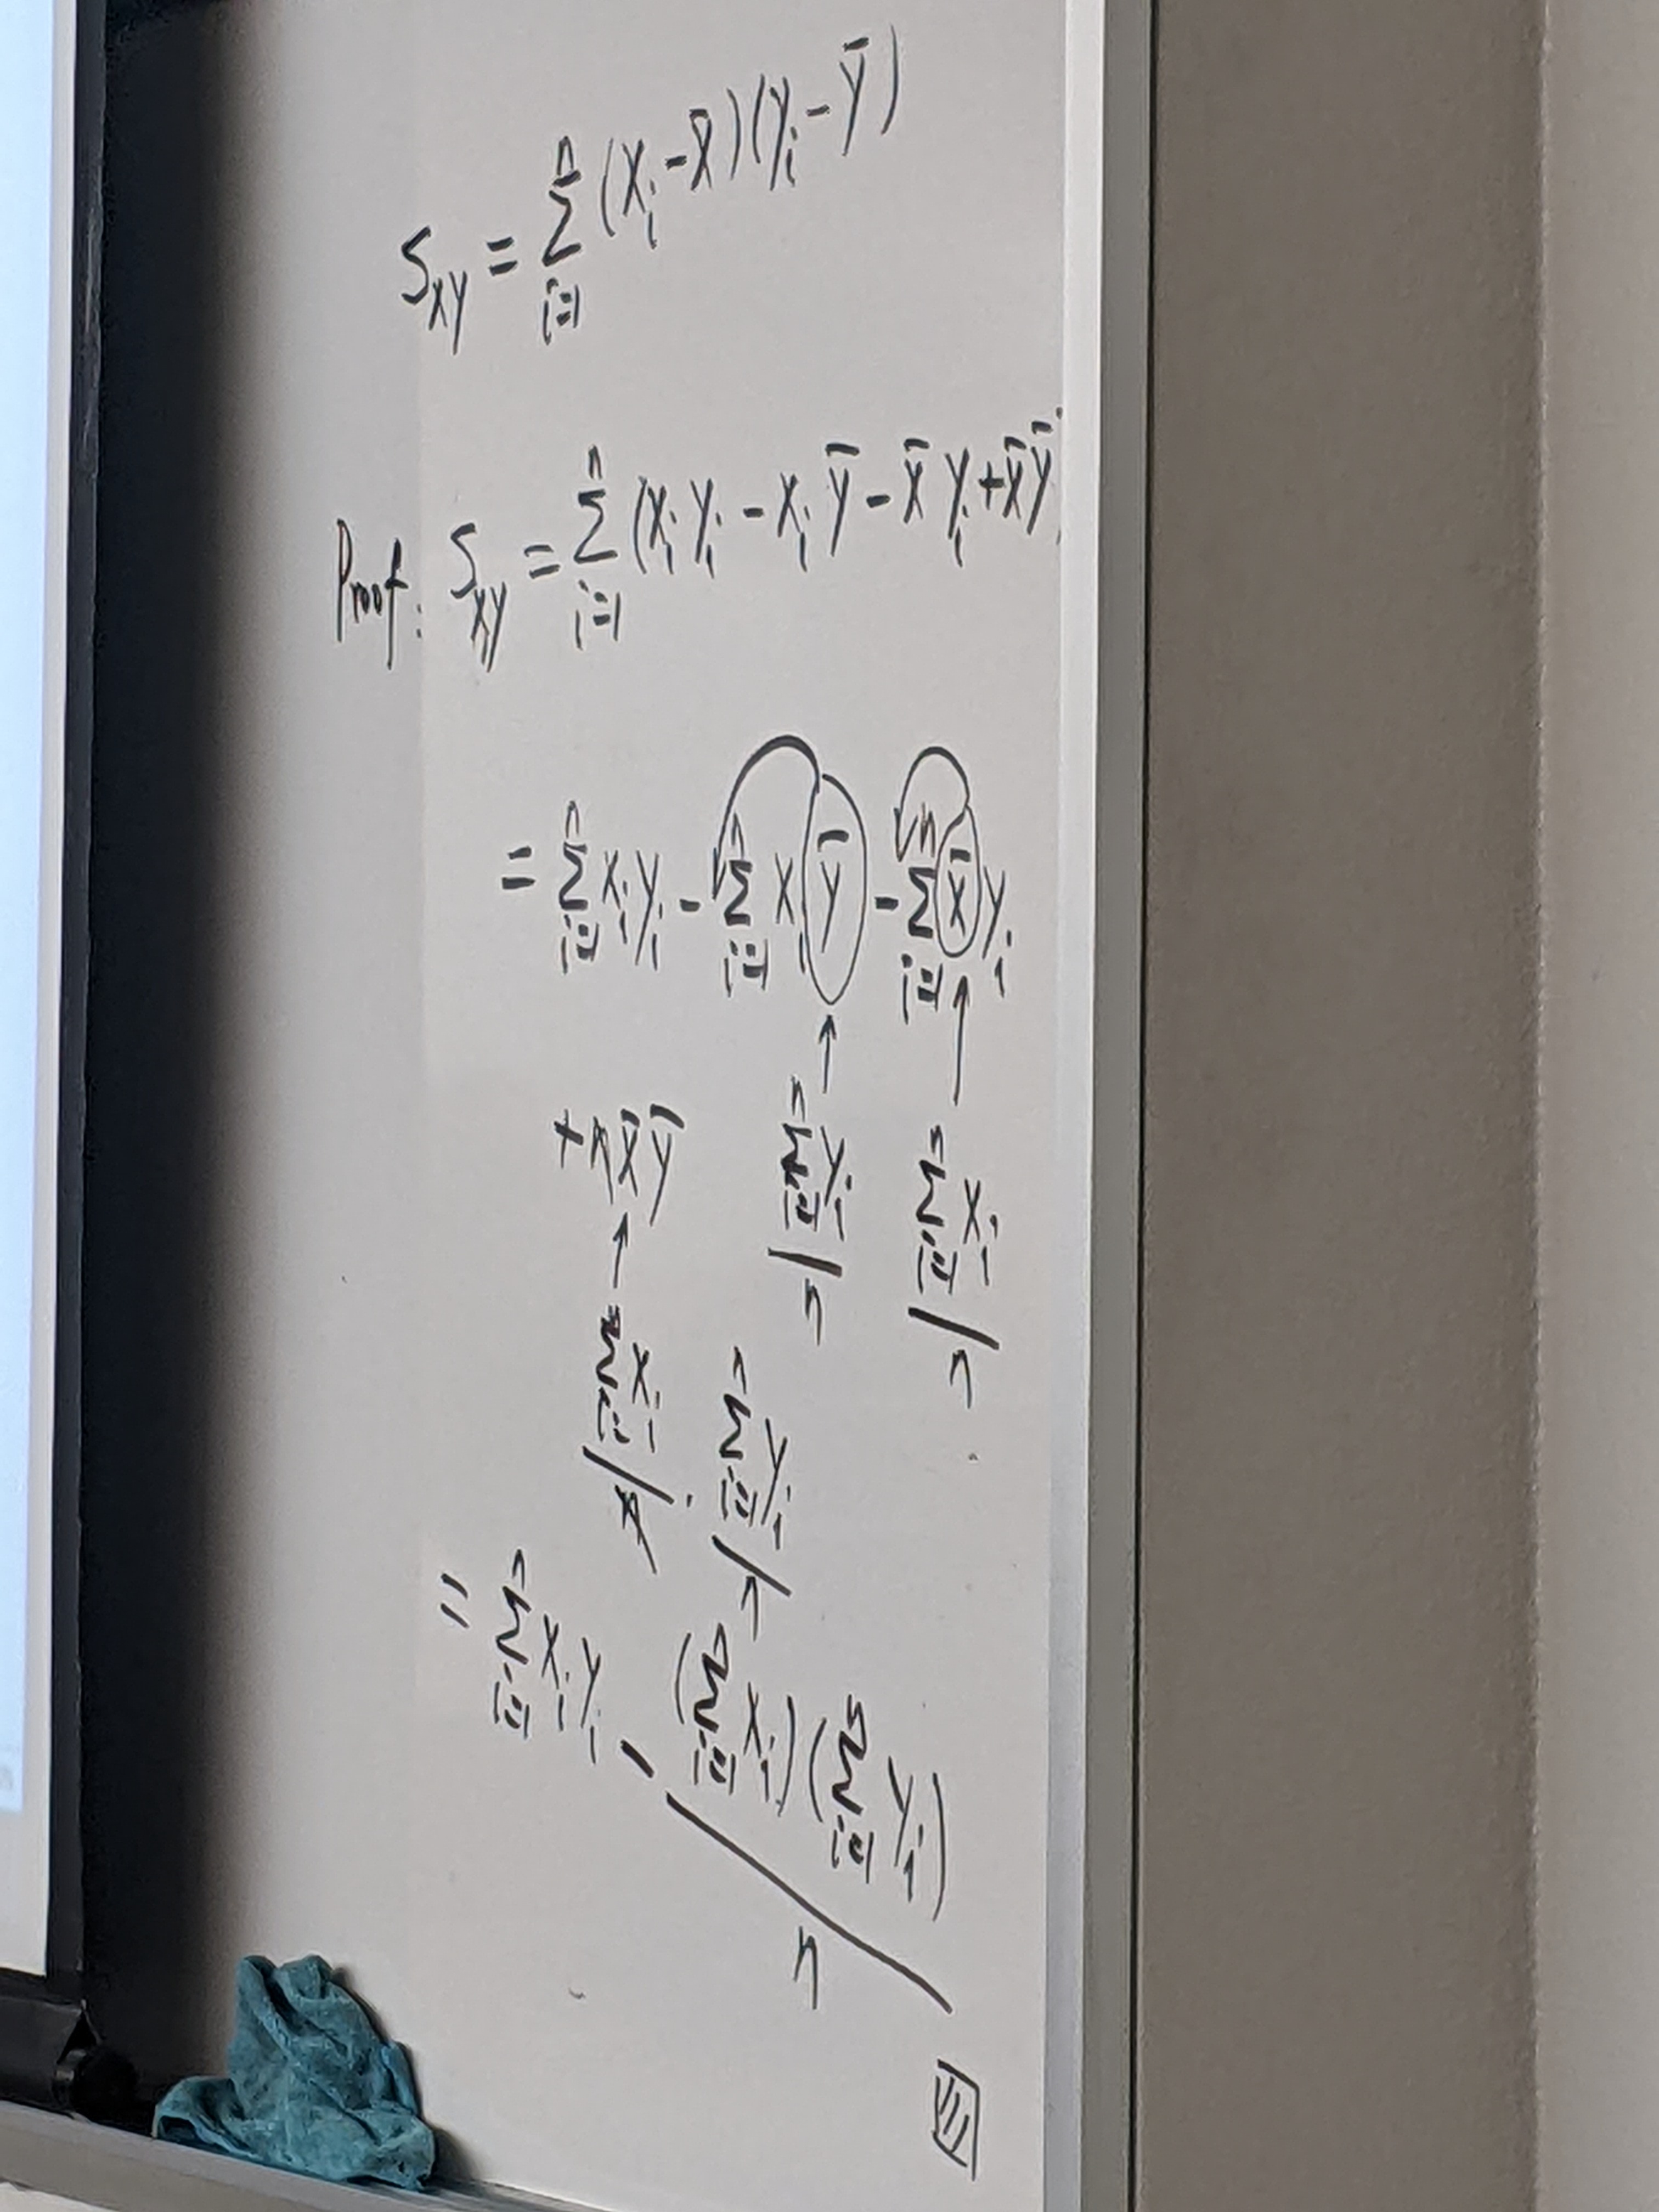 S_xy = Σ_{i=1}^{n} (x_i - x̄)(y_i - ȳ)
Proof: S_xy = Σ_{i=1}^{n} (x_i y_i - x_i ȳ - x̄ y_i + x̄ ȳ)
= Σ_{i=1}^{n} x_i y_i - Σ_{i=1}^{n} x_i ȳ - Σ_{i=1}^{n} x̄ y_i
↑ Σ_{i=1}^{n} y_i / n ↑ Σ_{i=1}^{n} x_i / n
+ n x̄ ȳ
↑ Σ_{i=1}^{n} x_i / n · Σ_{i=1}^{n} y_i / n
= Σ_{i=1}^{n} x_i y_i - (Σ_{i=1}^{n} x_i)(Σ_{i=1}^{n} y_i) / n